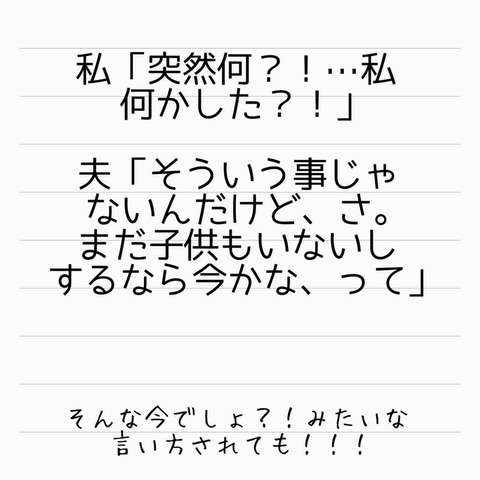 私「突然何？！…私
何かした？！」
夫「そういう事じゃ
ないんだけど、さ。
まだ子供もいないし
するなら今かな、って」
そんな今でしょ？！みたいな
言い方されても！！！